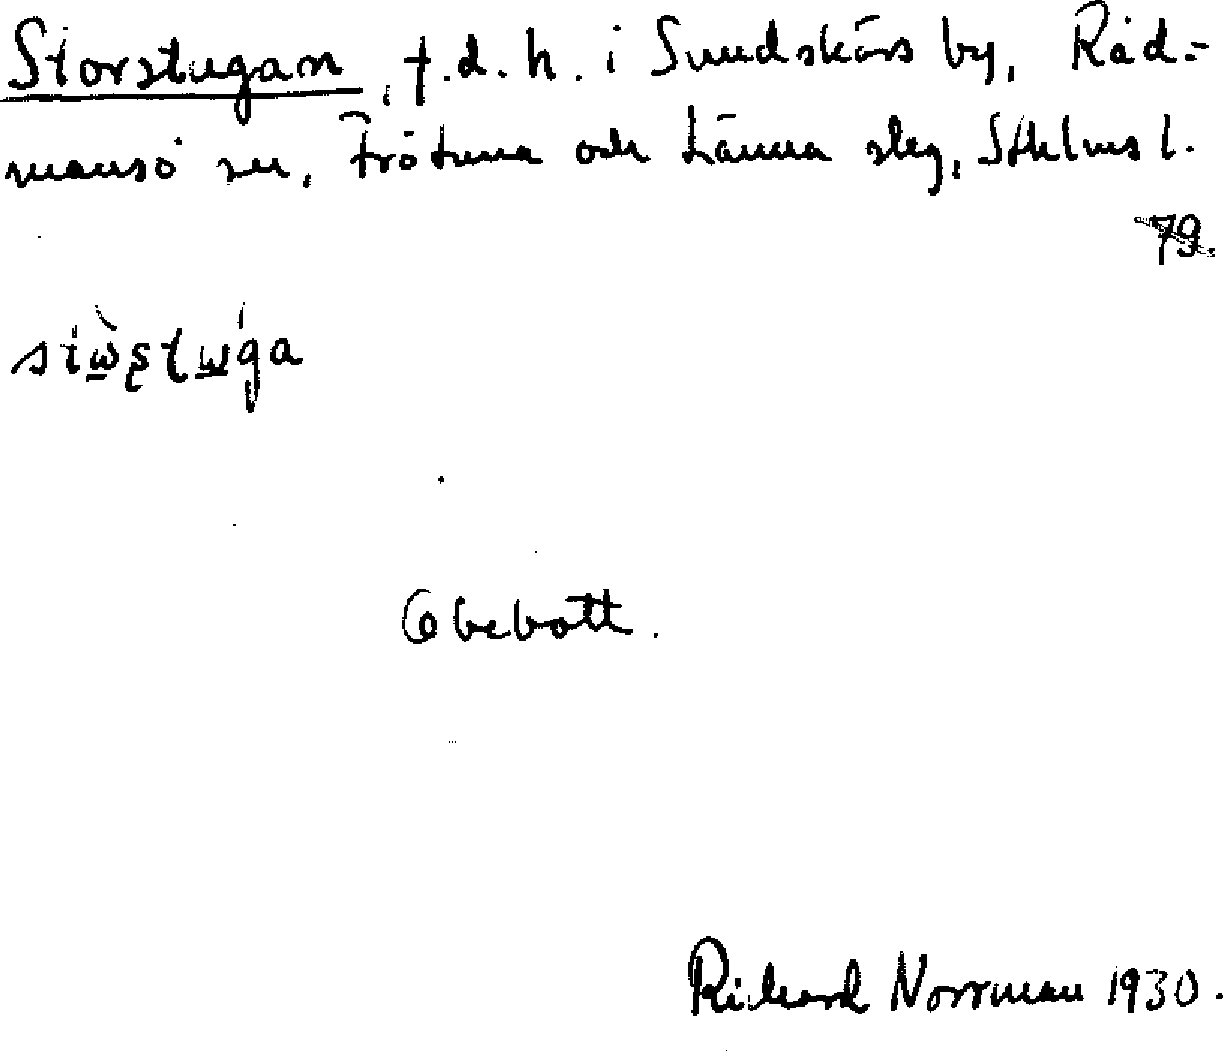 Storstugan, f.d. h. i Sundskärs by, Råd-
mansö sn, Frötuna och Länna slg, Sthlms l.
79.
stẁʂtẃga
Obebott.
Rickard Norrman 1930.